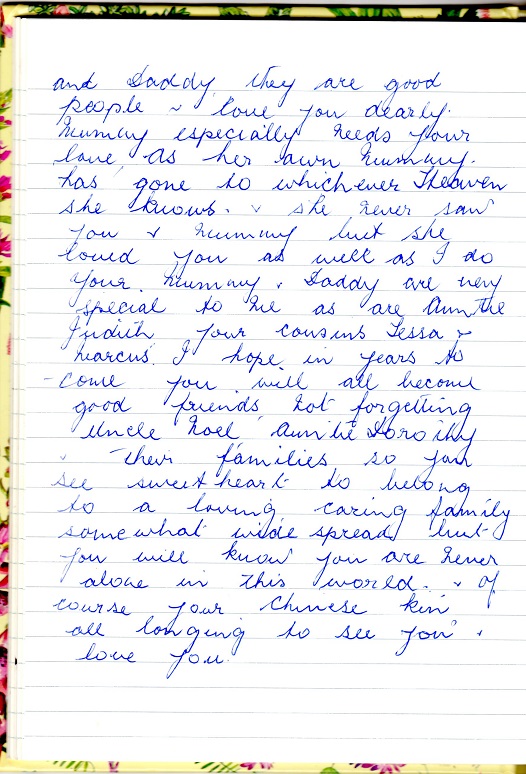 and Daddy they are good
people ~ love you dearly.
Mummy especially needs your
love as her own Mummy.
has gone to whichever Heaven
she knows. & she never saw
you & Mummy but she
loved you as well as I do
your. Mummy & Daddy are very
special to me as are Auntie
Judith your cousins Tessa &
Marcus. I hope in years to
come you will all become
good friends not forgetting
Uncle Noel Auntie Dorothy
& their families so you
see sweetheart to belong
to a loving, caring family
somewhat wide spread but
you will know you are never
alone in this world. & of
course your Chinese kin
all longing to see you &
love you.